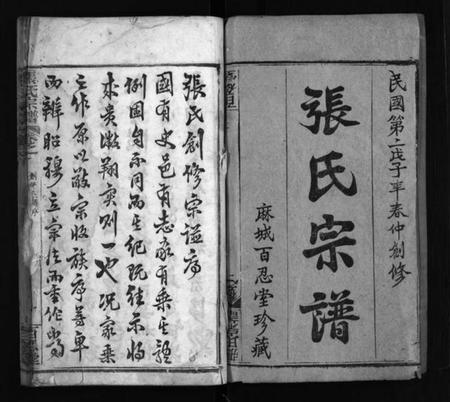 民國第二戊子年春仲創修
張氏宗譜
麻城百忍堂珍藏
張氏創修宗譜序
國有史邑有志家有乘其體
例固自不同而其紀既往示將
來貴激翔實則一也況家乘
之作原以敬宗收族序尊卑
而辨昭穆立章法而重作當
張氏宗譜